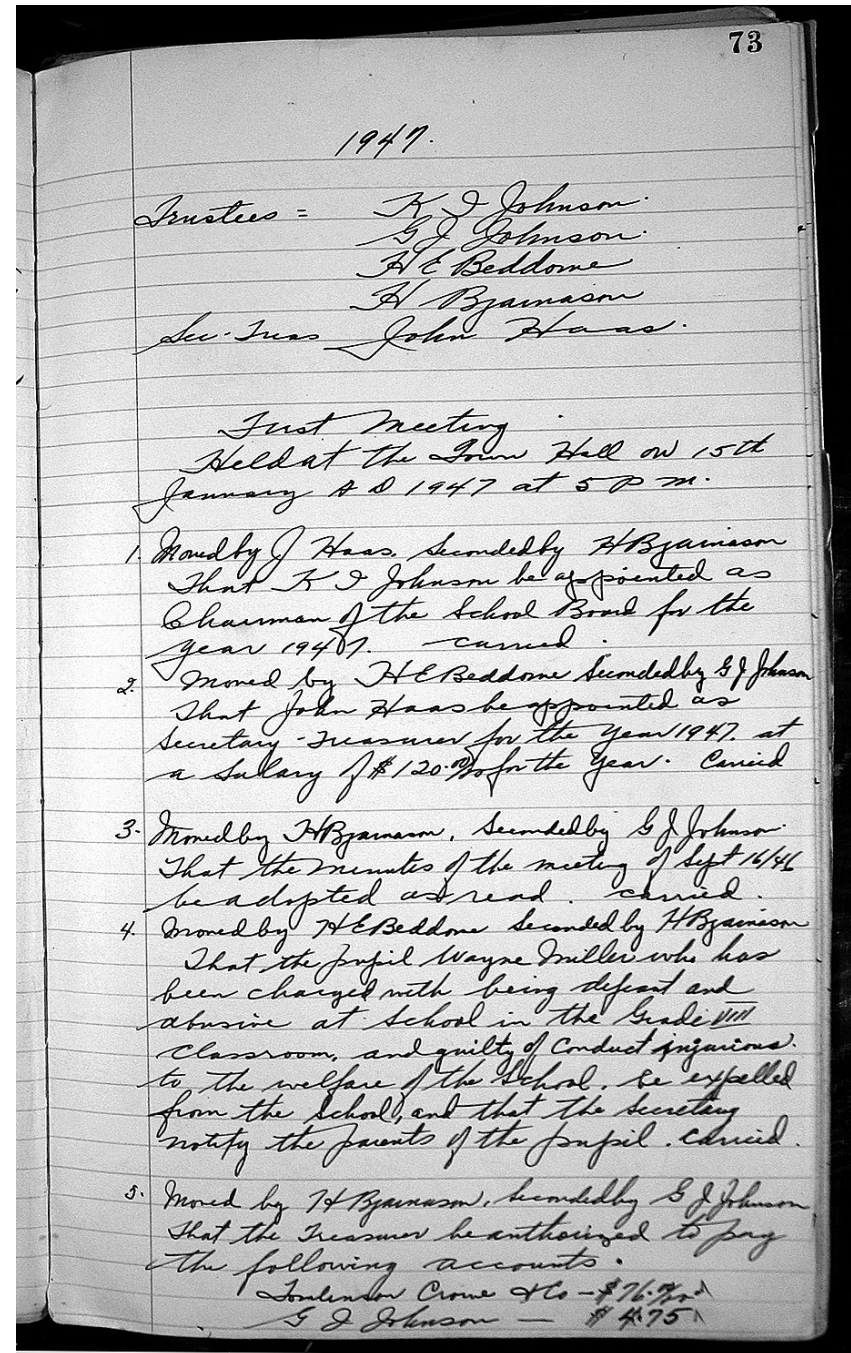 73
1947.
Trustees = K I Johnson.
G J Johnson.
H E Beddome
H Bjarnason
Sec-Treas John Haas.
First Meeting
Held at the Town Hall on 15th
January A D 1947 at 5 P m.
1. Moved by J Haas. Seconded by H Bjarnason
That K I Johnson be appointed as
Chairman of the School Board for the
year 1947. carried.
2. Moved by H E Beddome Seconded by G J Johnson
That John Haas be appointed as
Secretary-Treasurer for the Year 1947. at
a Salary of $120.00/00 for the Year. Carried
3. Moved by H Bjarnason, Seconded by G J Johnson.
That the minutes of the meeting of Sept 16/46
be adopted as read. carried.
4. Moved by H E Beddome Seconded by H Bjarnason
That the pupil Wayne Miller who has
been charged with being defiant and
abusive at School in the Grade VIII
classroom, and guilty of Conduct injurious.
to the welfare of the School. be expelled
from the School, and that the Secretary
notify the parents of the pupil. Carried.
5. Moved by H Bjarnason, Seconded by G J Johnson
That the Treasurer be authorized to pay
the following accounts.
Tomlinson Crowe & Co — $76.
G J Johnson — $4.75